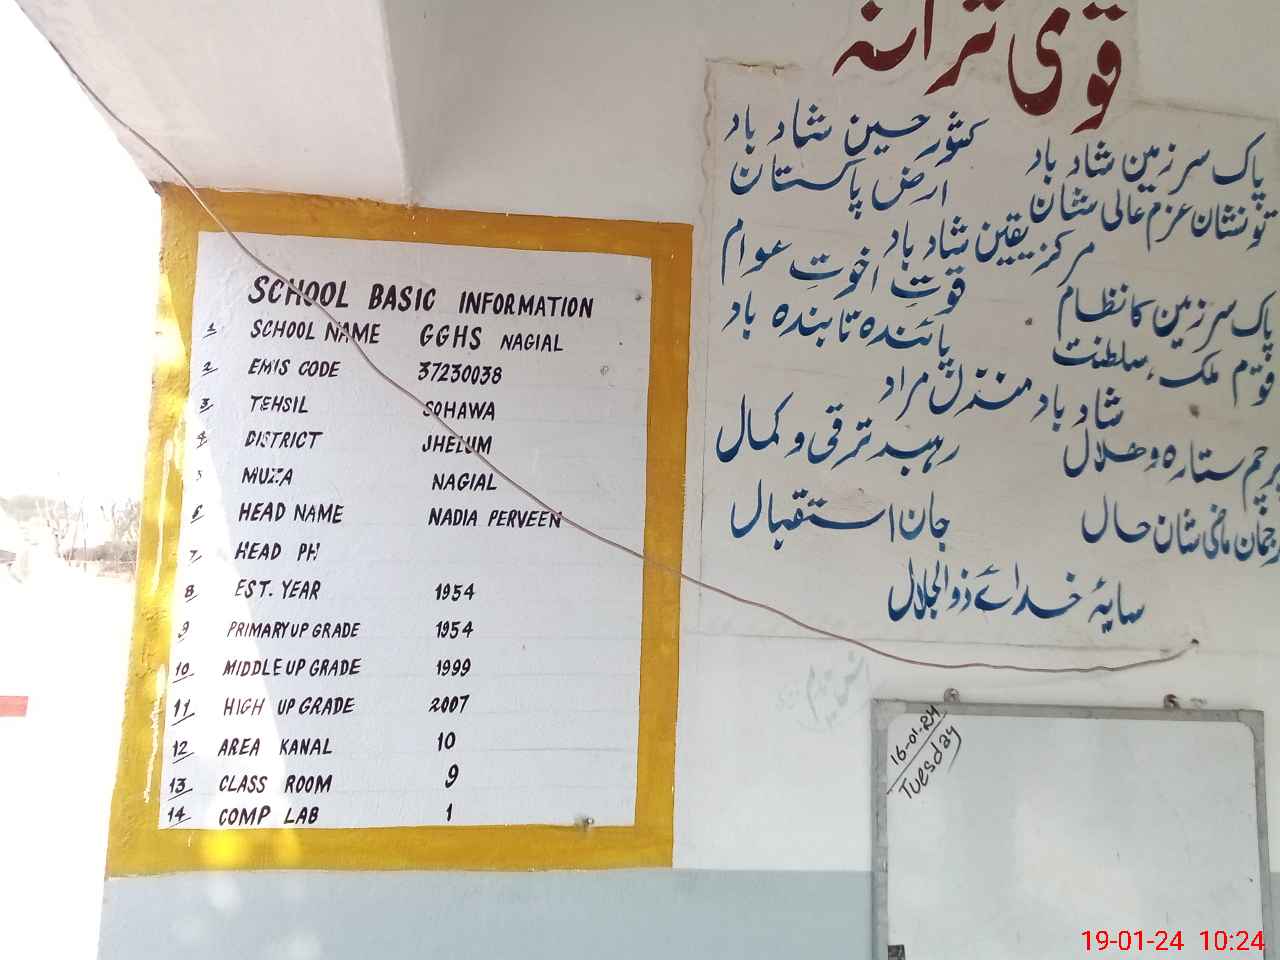 SCHOOL BASIC INFORMATION
1 SCHOOL NAME GGHS NAGIAL
2 EMIS CODE 37230038
3 TEHSIL SOHAWA
4 DISTRICT JHELUM
5 MUZZA NAGIAL
6 HEAD NAME NADIA PERVEEN
7 HEAD PH
8 EST. YEAR 1954
9 PRIMARY UP GRADE 1954
10 MIDDLE UP GRADE 1999
11 HIGH UP GRADE 2007
12 AREA KANAL 10
13 CLASS ROOM 9
14 COMP LAB 1
قومی ترانہ
پاک سرزمین شاد باد کشور حسین شاد باد
تو نشان عزم عالی شان ارض پاکستان
مرکز یقین شاد باد
پاک سرزمین کا نظام قوتِ اخوتِ عوام
قوم ملک سلطنت پائندہ تابندہ باد
شاد باد منزل مراد
پرچم ستارہ و ھلال رہبر ترقی و کمال
ترجمان ماضی شان حال جان استقبال
سایۂ خدائے ذوالجلال
16-01-24
Tuesday
19-01-24 10:24